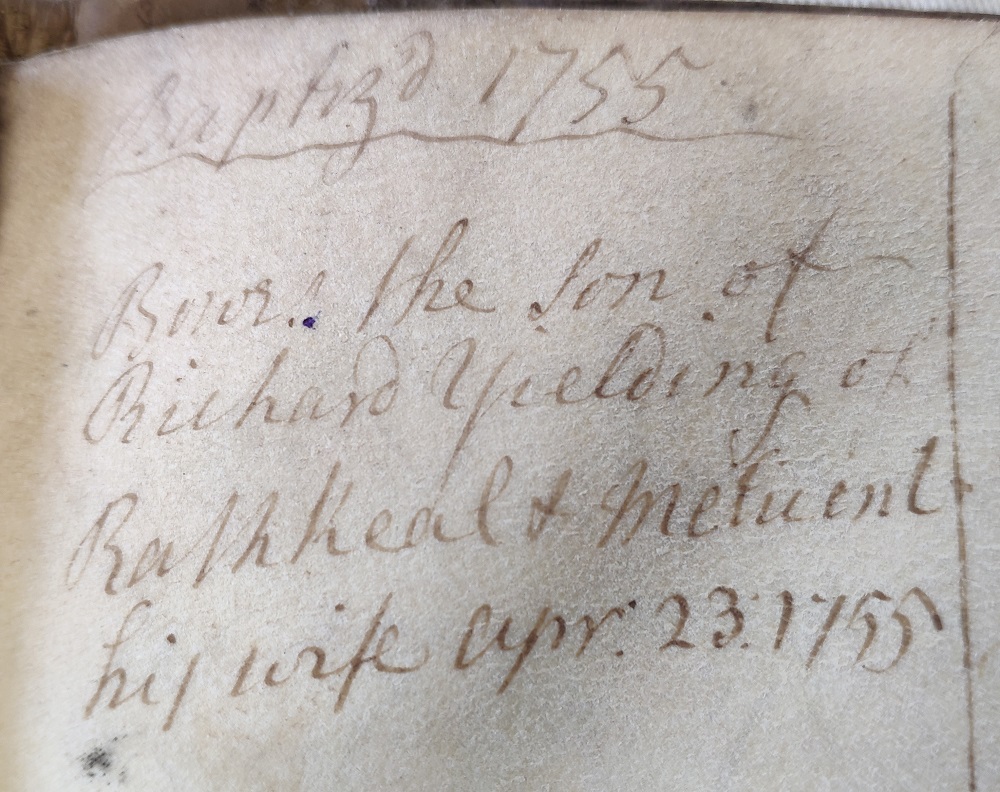 Baptiz'd 1755
the son of
Richard Yielding of
Rathkeal &
his wife Apr: 23: 1755